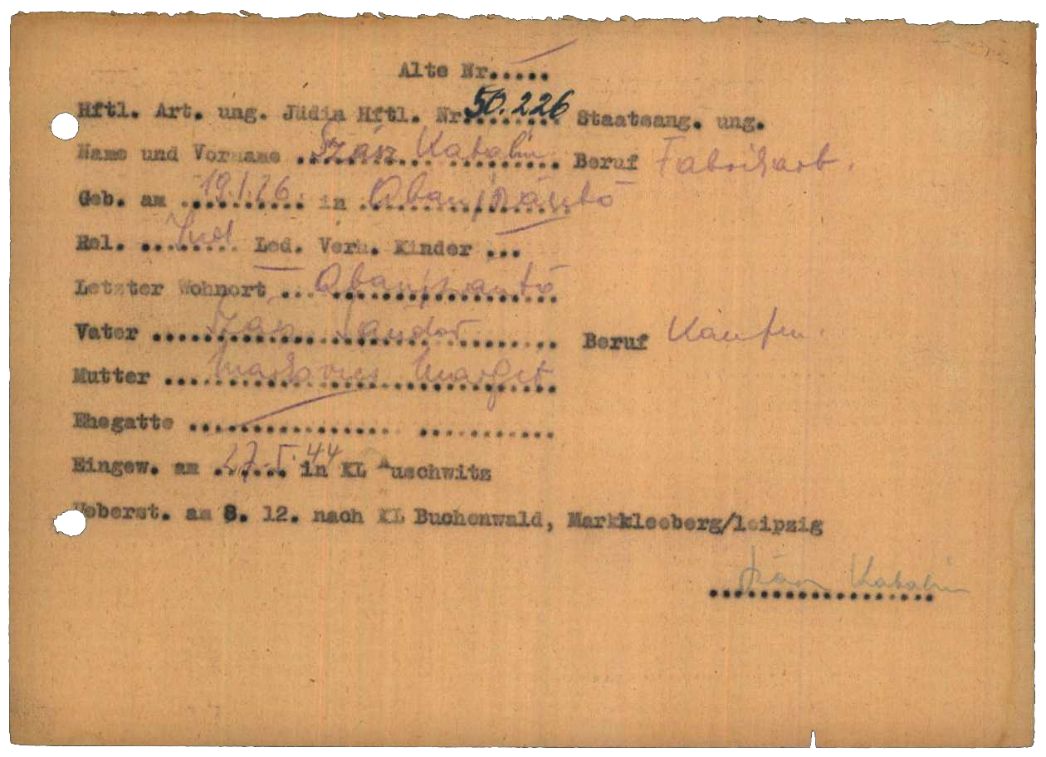 Alte Nr.....
Hftl. Art. ung. Jüdin Hftl. Nr. 50.226 Staatsang. ung.
Name und Vorname Szász Katalin Beruf Fabrikarb.
Geb. am 19.1.26. in Abaujszántó
Rel. Jüd Led. Verh. Kinder ...
Letzter Wohnort Abaujszantó
Vater Szász Sándor Beruf Kaufm.
Mutter Margit
Ehegatte
Eingew. am 27.5.44 in KL Auschwitz
Ueberst. am 8. 12. nach KL Buchenwald, Markkleeberg/leipzig
Szász Katalin